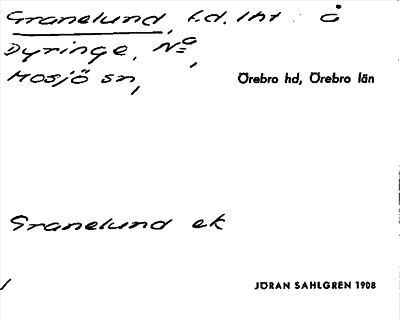 Granelund, f.d. lht å
Dyringe, No,
Mosjö sn, Örebro hd, Örebro län
Granelund ek
JÖRAN SAHLGREN 1908